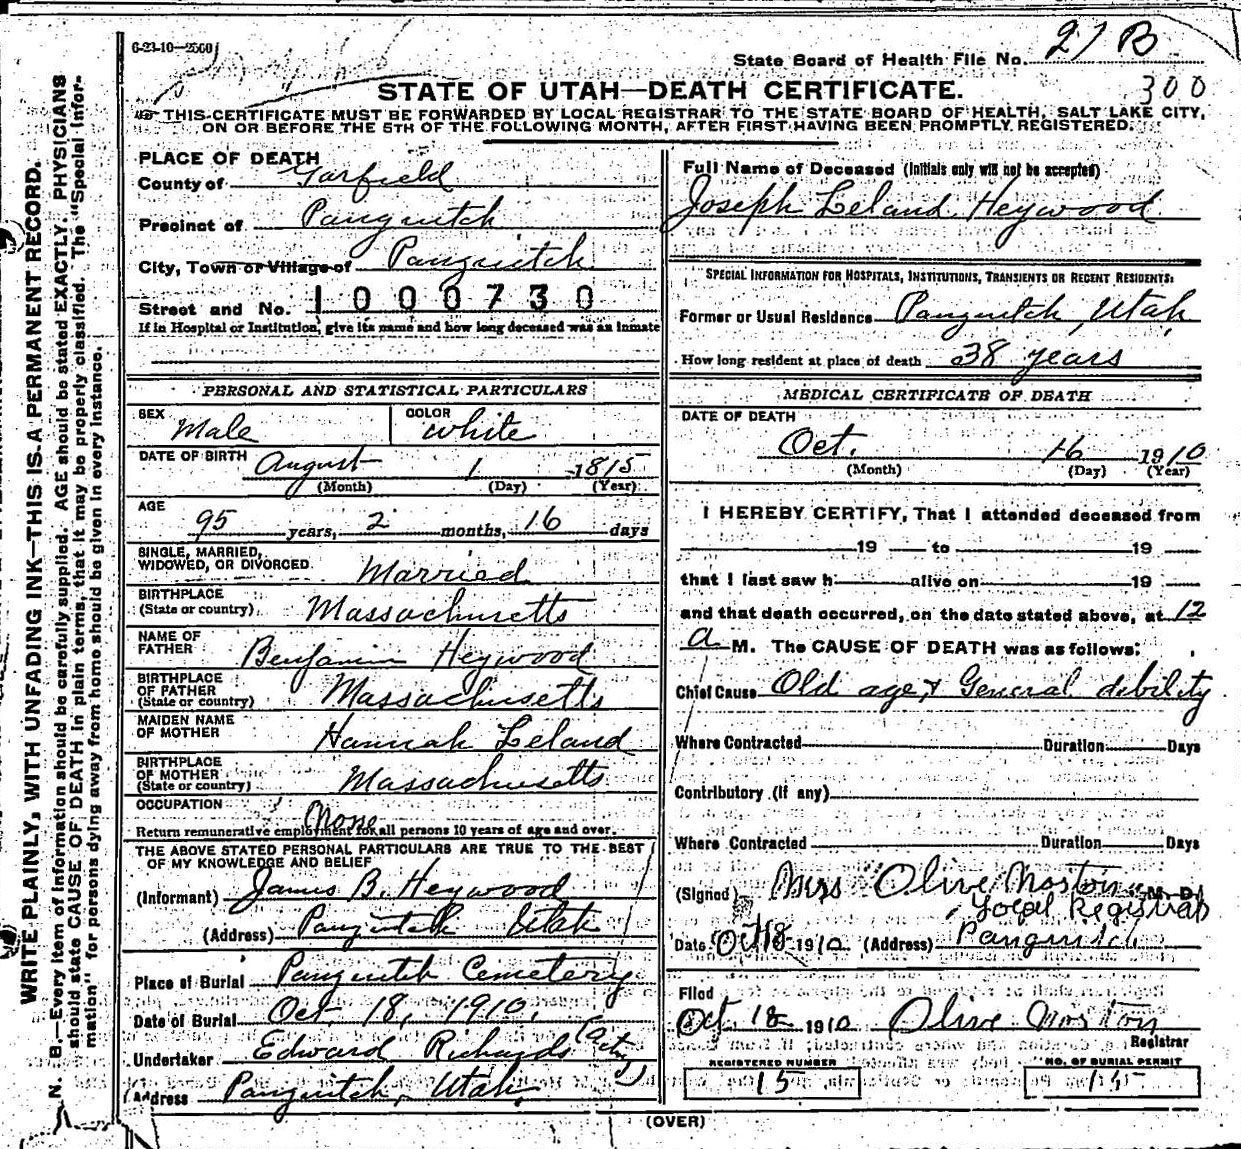 6-23-10—2500
State Board of Health File No. 27 B
300
STATE OF UTAH—DEATH CERTIFICATE.
THIS CERTIFICATE MUST BE FORWARDED BY LOCAL REGISTRAR TO THE STATE BOARD OF HEALTH, SALT LAKE CITY,
ON OR BEFORE THE 5TH OF THE FOLLOWING MONTH, AFTER FIRST HAVING BEEN PROMPTLY REGISTERED.
WRITE PLAINLY, WITH UNFADING INK—THIS IS A PERMANENT RECORD.
N. B.—Every item of information should be carefully supplied. AGE should be stated EXACTLY. PHYSICIANS
should state CAUSE OF DEATH in plain terms, that it may be properly classified. The "Special Infor-
mation" for persons dying away from home should be given in every instance.
PLACE OF DEATH
County of Garfield
Precinct of Panguitch
City, Town or Village of Panguitch
Street and No. 1000730
If in Hospital or Institution, give its name and how long deceased was an inmate
PERSONAL AND STATISTICAL PARTICULARS
SEX Male COLOR White
DATE OF BIRTH August 1 1815
(Month) (Day) (Year)
AGE
95 years, 2 months, 16 days
SINGLE, MARRIED,
WIDOWED, OR DIVORCED. Married
BIRTHPLACE
(State or country) Massachusetts
NAME OF
FATHER Benjamin Heywood
BIRTHPLACE
OF FATHER
(State or country) Massachusetts
MAIDEN NAME
OF MOTHER Hannah Leland
BIRTHPLACE
OF MOTHER
(State or country) Massachusetts
OCCUPATION None
Return remunerative employment for all persons 10 years of age and over.
THE ABOVE STATED PERSONAL PARTICULARS ARE TRUE TO THE BEST
OF MY KNOWLEDGE AND BELIEF
(Informant) James B. Heywood
(Address) Panguitch Utah
Place of Burial Panguitch Cemetery
Date of Burial Oct. 18, 1910.
Undertaker Edward Richards
Address Panguitch, Utah.
Full Name of Deceased (Initials only will not be accepted)
Joseph Leland Heywood
SPECIAL INFORMATION FOR HOSPITALS, INSTITUTIONS, TRANSIENTS OR RECENT RESIDENTS:
Former or Usual Residence Panguitch, Utah
How long resident at place of death 38 years
MEDICAL CERTIFICATE OF DEATH
DATE OF DEATH
Oct. 16 1910
(Month) (Day) (Year)
I HEREBY CERTIFY, That I attended deceased from
19 to 19
that I last saw h alive on 19
and that death occurred, on the date stated above, at 12
a M. The CAUSE OF DEATH was as follows:
Chief Cause Old age & General debility
Where Contracted Duration Days
Contributory (if any)
Where Contracted Duration Days
(Signed) Mrs Olive Norton M. D.
Local Registrar
Date Oct 18 1910 (Address) Panguitch
Filed
Oct. 18 1910 Olive Norton
Registrar
REGISTERED NUMBER
15
NO. OF BURIAL PERMIT
15
(OVER)